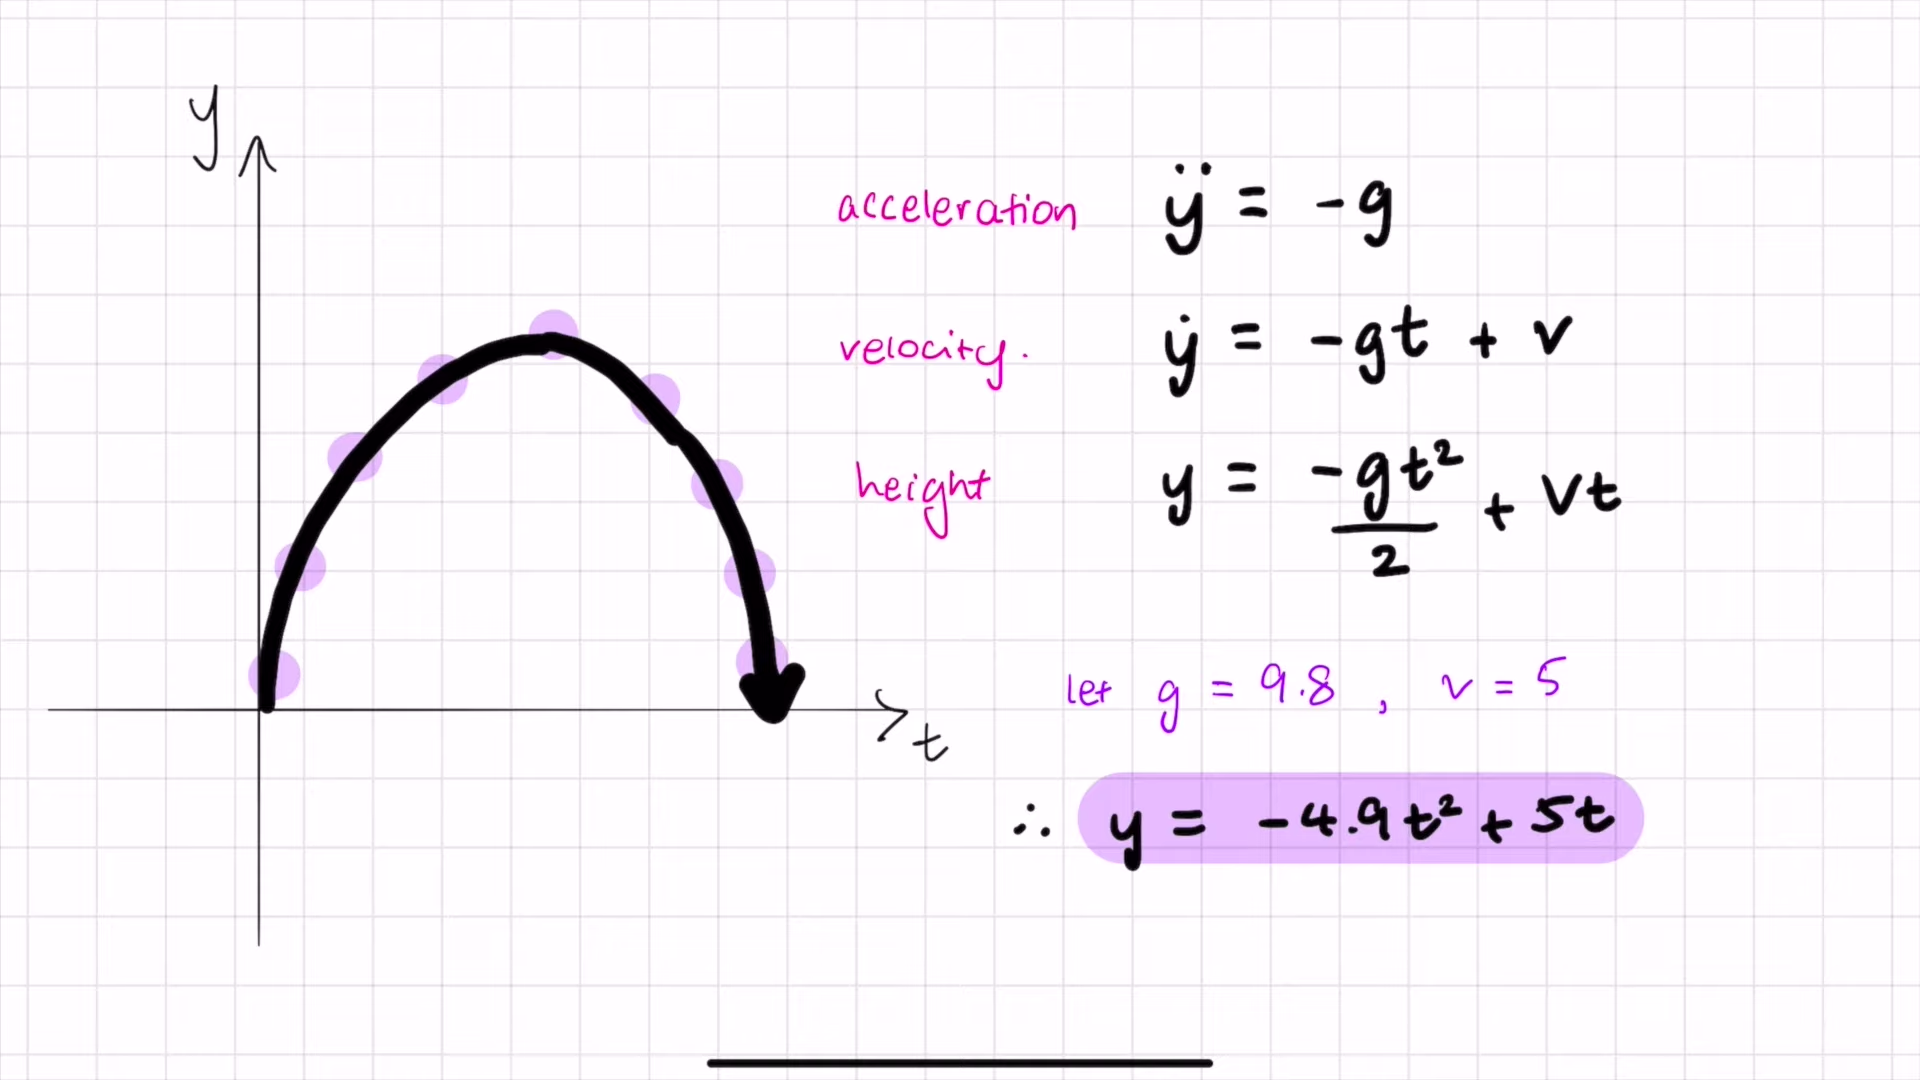 y
acceleration ÿ = -g
velocity. ẏ = -gt + v
height y = -gt²/2 + vt
t
let g = 9.8 , v = 5
∴ y = -4.9t² + 5t